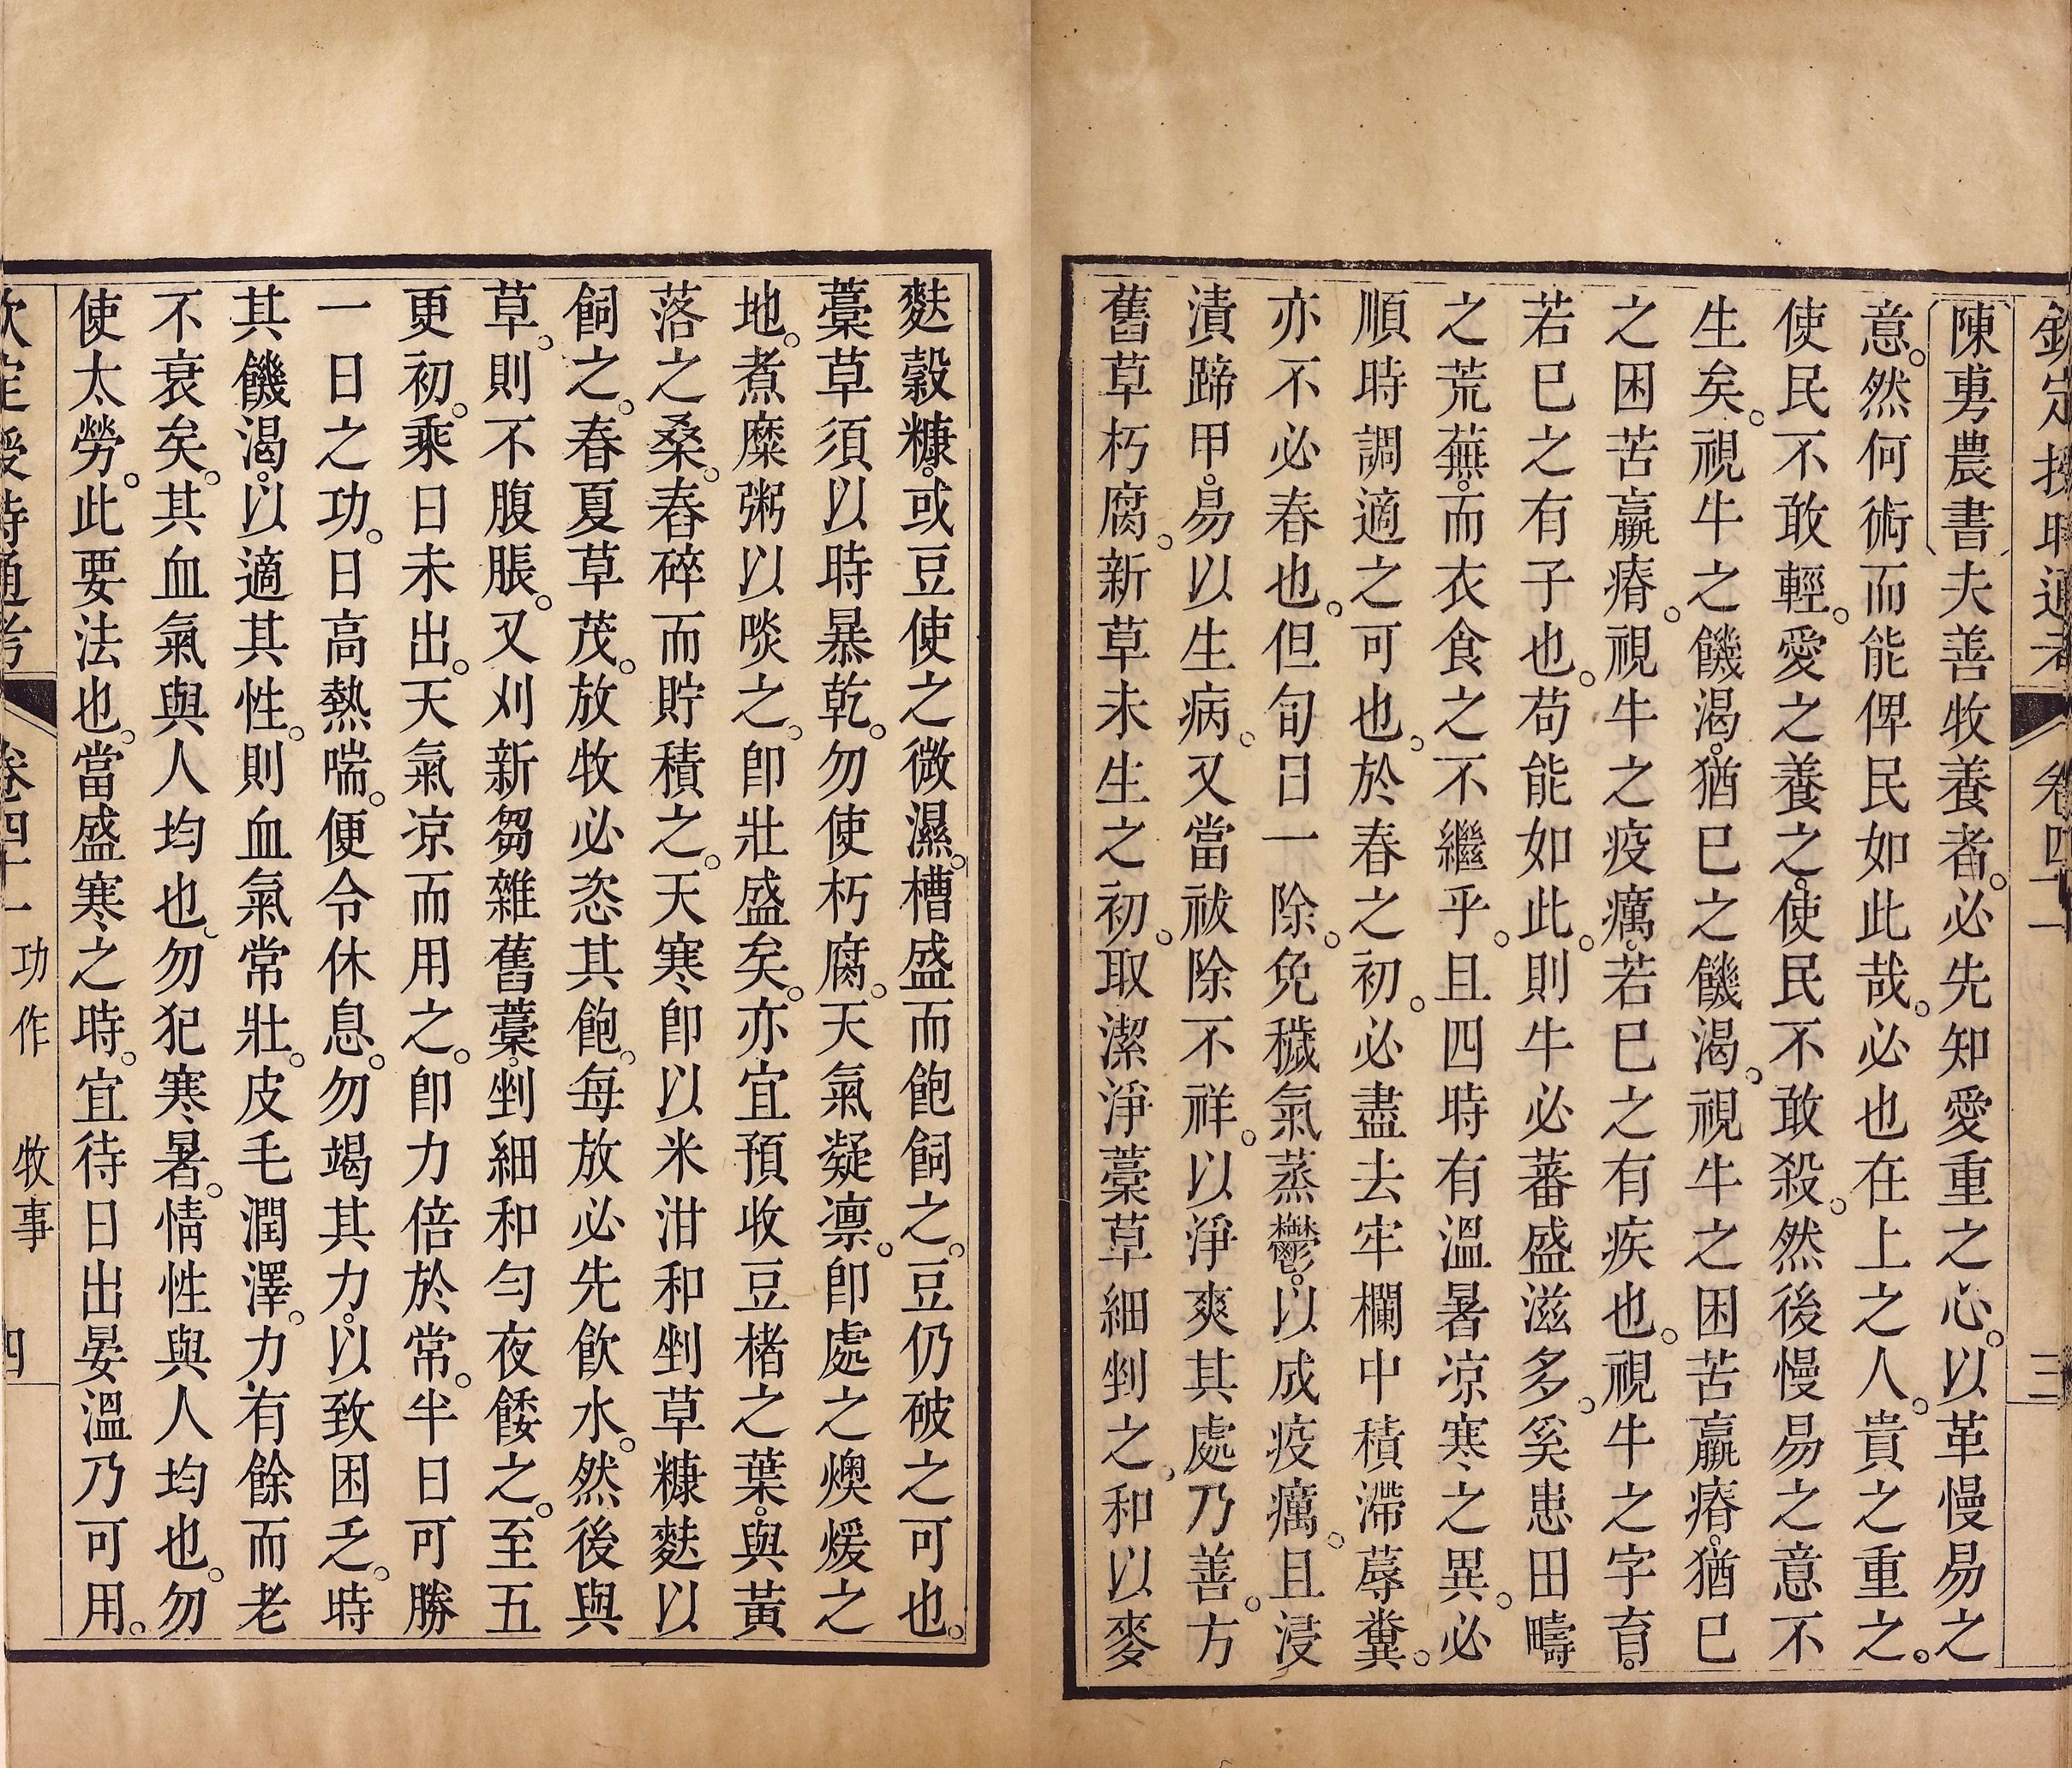 欽定授時通考 卷四十一 三
陳旉農書夫善牧養者必先知愛重之心以革慢易之
意然何術而能俾民如此哉必也在上之人貴之重之
使民不敢輕愛之養之使民不敢殺然後慢易之意不
生矣視牛之饑渴猶巳之饑渴視牛之困苦羸瘠猶巳
之困苦羸瘠視牛之疫癘若巳之有疾也視牛之字育
若巳之有子也苟能如此則牛必蕃盛滋多奚患田疇
之荒蕪而衣食之不繼乎且四時有溫暑凉寒之異必
順時調適之可也於春之初必盡去牢欄中積滯蓐糞
亦不必春也但旬日一除免穢氣蒸鬱以成疫癘且浸
漬蹄甲易以生病又當祓除不祥以淨爽其處乃善方
舊草朽腐新草未生之初取潔淨藁草細剉之和以麥
麩穀糠或豆使之微濕槽盛而飽飼之豆仍破之可也
藁草須以時暴乾勿使朽腐天氣凝凛卽處之燠煖之
地煮糜粥以啖之卽壯盛矣亦宜預收豆楮之葉與黃
落之桑舂碎而貯積之天寒卽以米泔和剉草糠麩以
飼之春夏草茂放牧必恣其飽每放必先飮水然後與
草則不腹脹又刈新芻雜舊藁剉細和勻夜餧之至五
更初乘日未出天氣凉而用之卽力倍於常半日可勝
一日之功日高熱喘便令休息勿竭其力以致困乏時
其饑渴以適其性則血氣常壯皮毛潤澤力有餘而老
不衰矣其血氣與人均也勿犯寒暑情性與人均也勿
使太勞此要法也當盛寒之時宜待日出晏溫乃可用
欽定授時通考 卷四十一 功作 牧事 四